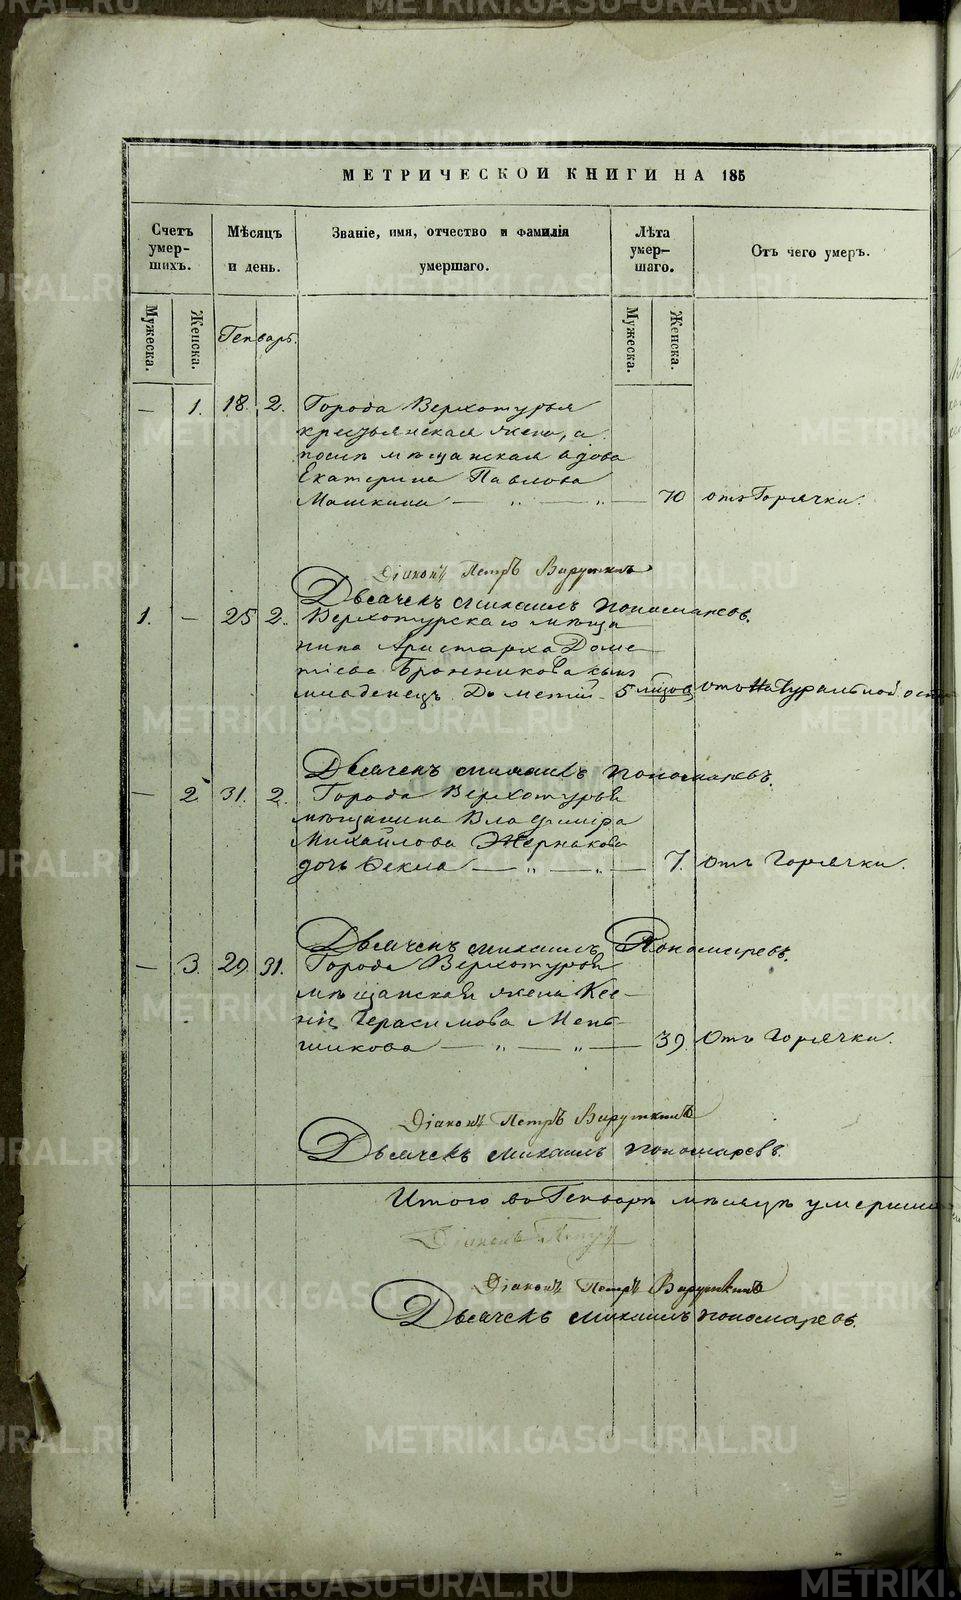 МЕТРИЧЕСКОЙ КНИГИ НА 185
Счетъ умер-шихъ.
Мѣсяцъ и день.
Званіе, имя, отчество и фамилія умершаго.
Лѣта умер-шаго.
Отъ чего умеръ.
Мужеска. Женска. Генварь. Мужеска. Женска.
— 1. 18. 2. Города Верхотурья
крестьянская жена, а
послѣ мѣщанская вдова
Екатерина Павлова
Машкина — „ — „ — 70 отъ Горячки.
Діаконъ Петръ
Дьячекъ Михаилъ Пономаревъ.
1. — 25 2. Верхотурскаго мѣща
нина Аристарха Доме
тіева Бронникова сынъ
младенецъ Дометій 5 мѣсяц. отъ Натуральной оспы
Дьячекъ Михаилъ Пономаревъ.
— 2 31. 2. Города Верхотурья
мѣщанина Владимира
Михайлова Жернакова
дочь Фекла — „ — „ — 7. отъ Горячки.
Дьячекъ Михаилъ Пономаревъ.
— 3. 29 31. Города Верхотурья
мѣщанская жена Ксе-
нія Герасимова Мень-
шикова — „ — „ — 39. Отъ Горячки.
Діаконъ Петръ
Дьячекъ Михаилъ Пономаревъ.
Итого въ Генварѣ мѣсяцѣ умерших
Діаконъ Петръ
Діаконъ Петръ
Дьячекъ Михаилъ Пономаревъ.
METRIKI.GASO-URAL.RU